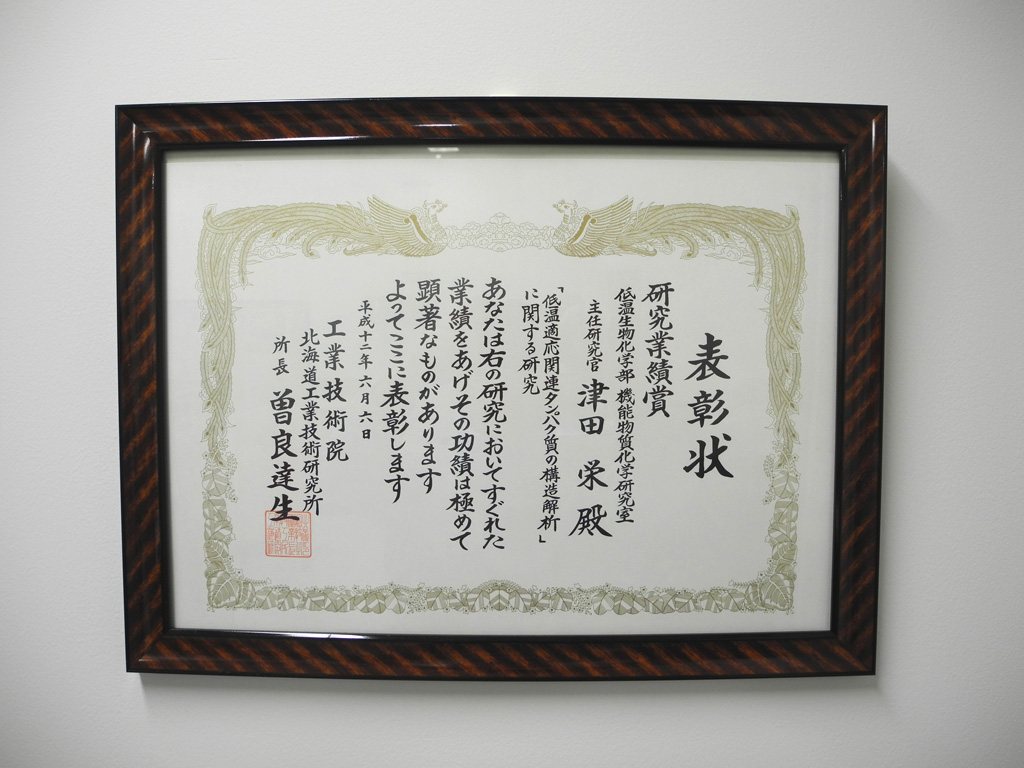 表彰状
研究業績賞
低温生物化学部 機能物質化学研究室
主任研究官 津田 栄 殿
「低温適応関連タンパク質の構造解析」
に関する研究
あなたは右の研究においてすぐれた
業績をあげその功績は極めて
顕著なものがあります
よってここに表彰します
平成十二年六月六日
工業技術院
北海道工業技術研究所
所長 曽良達生